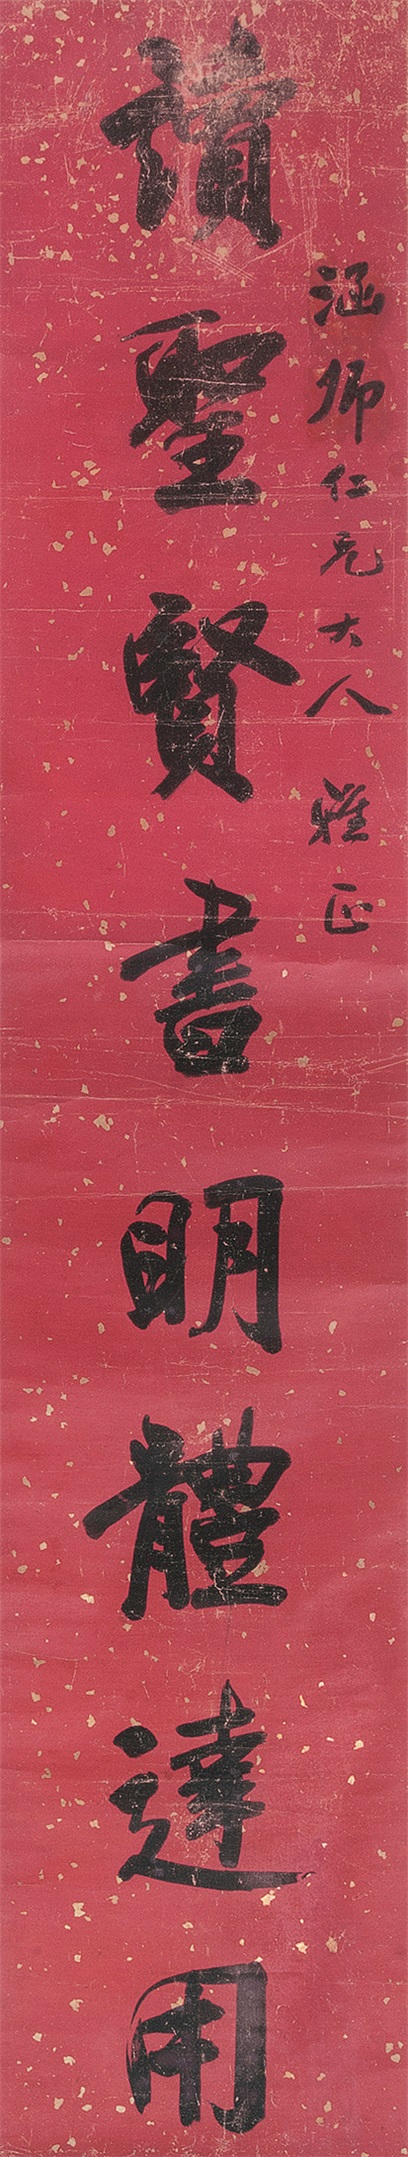 涵卿仁兄大人雅正
讀聖賢書明體達用